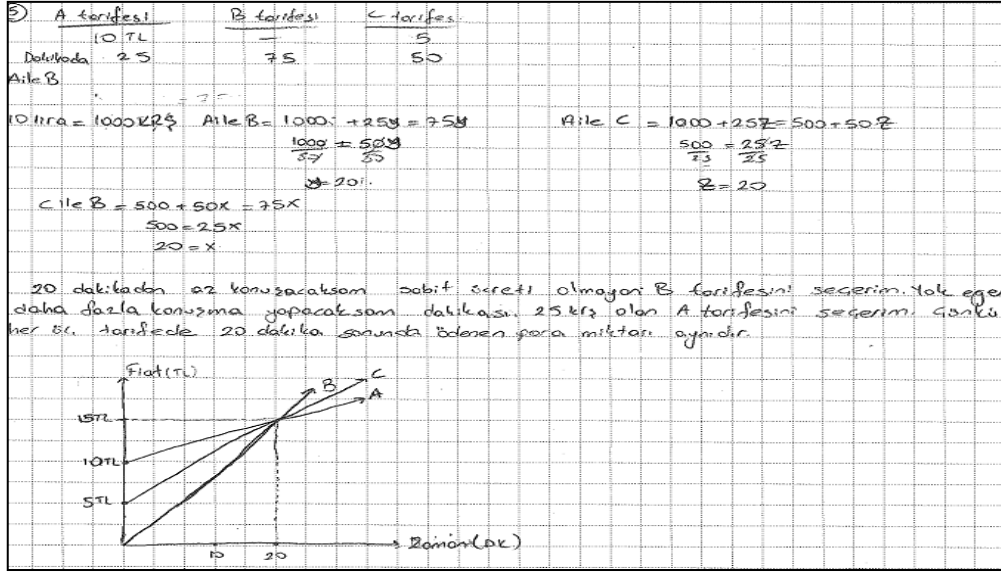 5) A tarifesi B tarifesi C tarifes.
10 TL — 5
Dakikada 25 75 50
A ile B
10 lira = 1000 KRŞ A ile B = 1000 + 25y = 75y A ile C = 1000 + 25z = 500 + 50z
1000/50 = 50y/50 500/25 = 25z/25
y = 20 z = 20
C ile B = 500 + 50x = 75x
500 = 25x
20 = x
20 dakikadan az konuşacaksam sabit ücreti olmayan B tarifesini seçerim. Yok eğer
daha fazla konuşma yapacaksam dakikası 25 krş olan A tarifesini seçerim. Çünkü
her üç tarifede 20 dakika sonunda ödenen para miktarı aynıdır.
Fiat (TL)
B C
A
15TL
10TL
5TL
10 20 Zaman (DK)